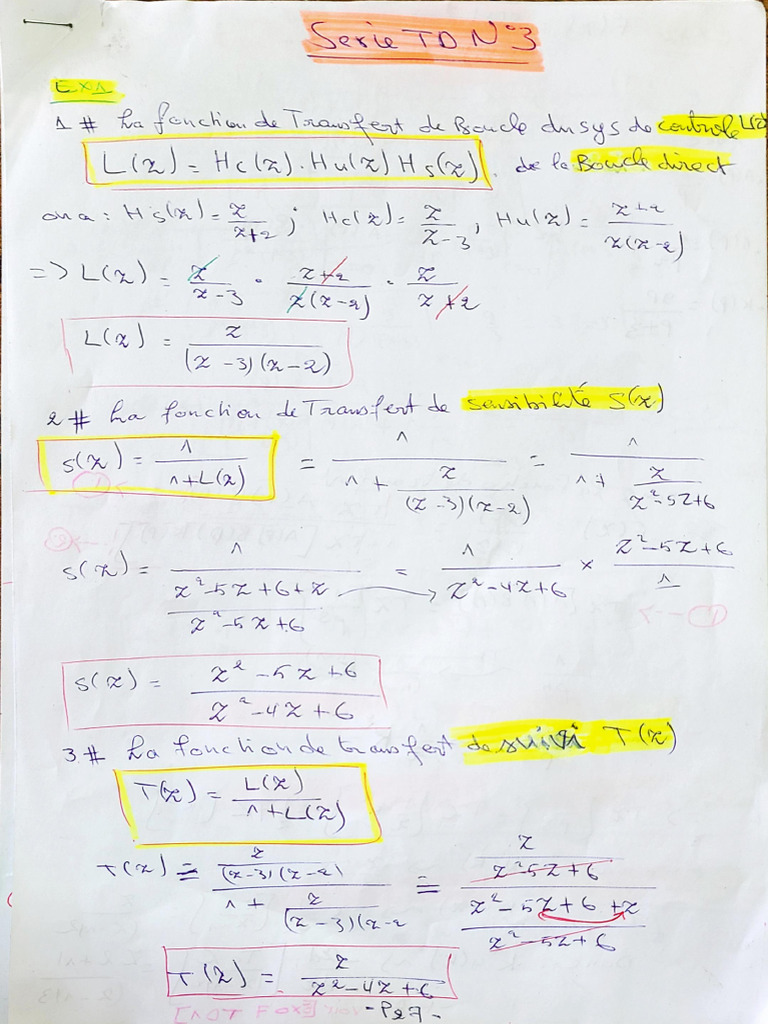 Serie TD N°3
EX1
1 # La fonction de Transfert de Boucle du sys de controle L(z)
L(z) = Hc(z) . Hu(z) Hs(z) . de la Boucle direct
on a : Hs(z) = z/(z+2) ; Hc(z) = z/(z-3) , Hu(z) = (z+2)/(z(z-2))
=> L(z) = z/(z-3) . (z+2)/(z(z-2)) . z/(z+2)
L(z) = z/((z-3)(z-2))
2 # La fonction de Transfert de sensibilité S(z)
S(z) = 1/(1+L(z)) = 1/(1 + z/((z-3)(z-2))) = 1/(1 + z/(z²-5z+6))
S(z) = 1/((z²-5z+6+z)/(z²-5z+6)) = 1/(z²-4z+6) × (z²-5z+6)/1
S(z) = (z²-5z+6)/(z²-4z+6)
3 # La fonction de transfert de suivi T(z)
T(z) = L(z)/(1+L(z))
T(z) = (z/((z-3)(z-2)))/(1 + z/((z-3)(z-2)) = (z/(z²-5z+6))/((z²-5z+6+z)/(z²-5z+6))
T(z) = z/(z²-4z+6)
-P27-